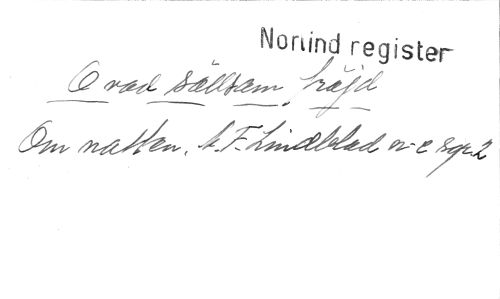 Norlind register
O vad sällsam, fröjd
Om natten. A. F. Lindblad